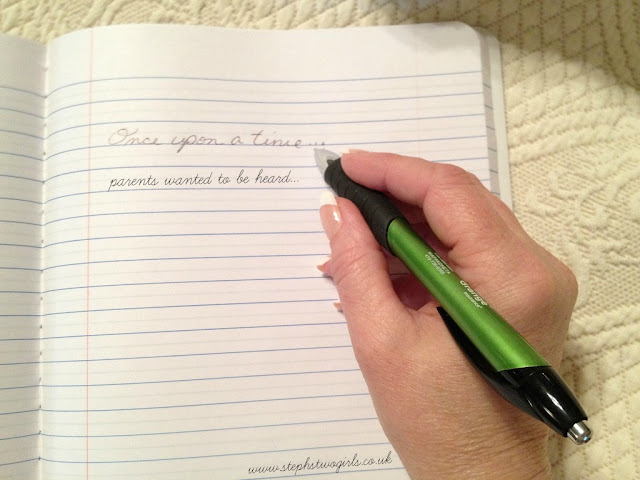 Once upon a time...
parents wanted to be heard...
www.stephstwogirls.co.uk